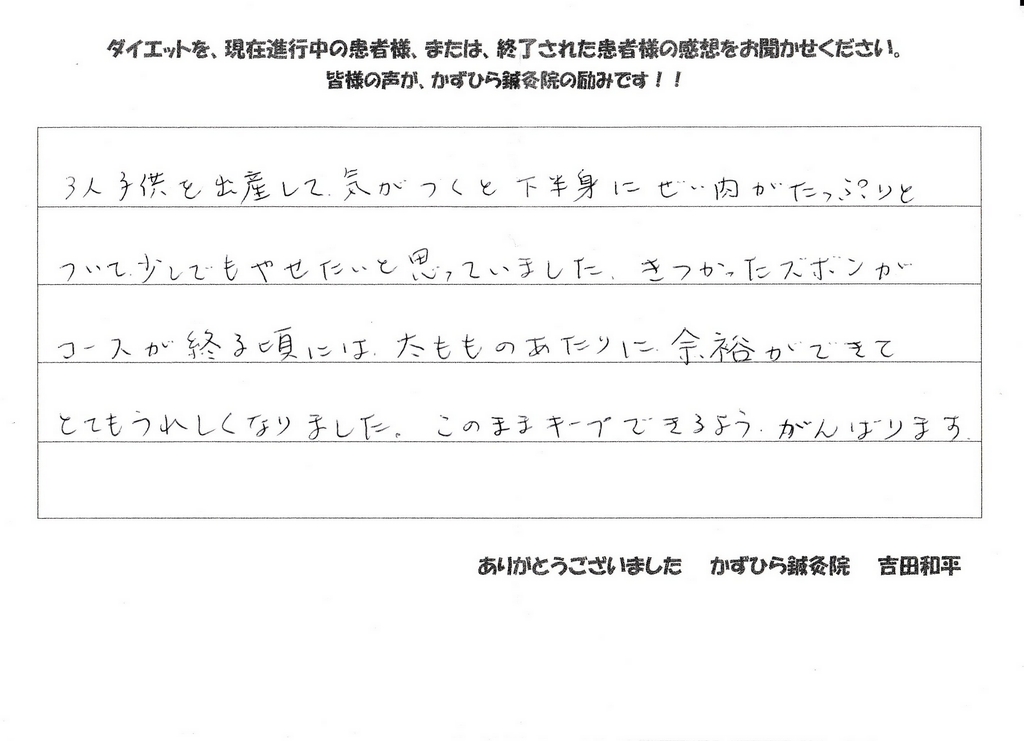 ダイエットを、現在進行中の患者様、または、終了された患者様の感想をお聞かせください。
皆様の声が、かずひら鍼灸院の励みです！！
3人子供を出産して、気がつくと下半身にぜい肉がたっぷりと
ついて、少しでもやせたいと思っていました、きつかったズボンが
コースが終る頃には、太もものあたりに、余裕ができて
とてもうれしくなりました。このままキープできるよう、がんばります、
ありがとうございました かずひら鍼灸院 吉田和平